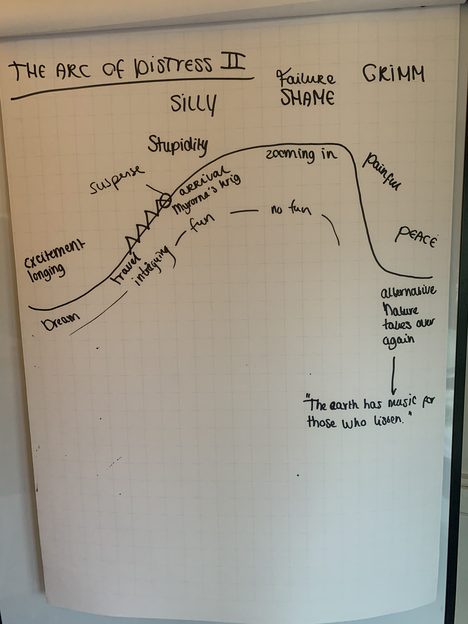 THE ARC OF DISTRESS II
SILLY
Failure
SHAME
GRIMM
Stupidity
suspense
arrival
Myrorna's krig
zooming in
painful
excitement
longing
travel
intriguing
fun
no fun
PEACE
Dream
alternative
Nature
takes over
again
"The earth has music for
those who listen."